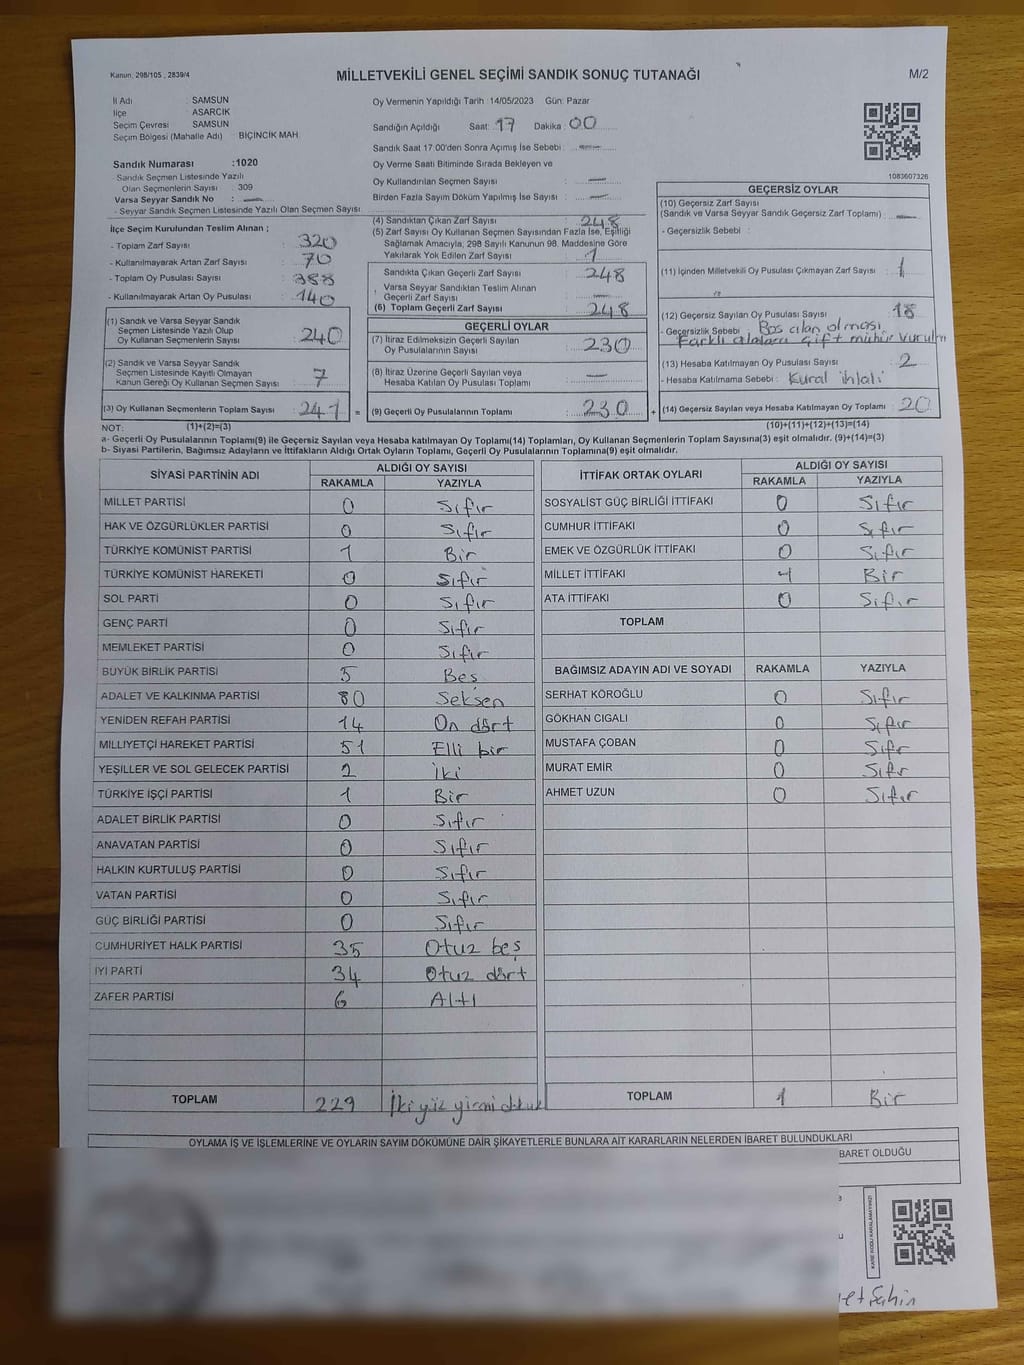 Kanun, 298/105 , 2839/4
MİLLETVEKİLİ GENEL SEÇİMİ SANDIK SONUÇ TUTANAĞI
M/2
İl Adı : SAMSUN
İlçe : ASARCIK
Seçim Çevresi : SAMSUN
Seçim Bölgesi (Mahalle Adı) : BİÇİNCİK MAH.
Sandık Numarası :1020
Sandık Seçmen Listesinde Yazılı
Olan Seçmenlerin Sayısı : 309
Varsa Seyyar Sandık No : —
- Seyyar Sandık Seçmen Listesinde Yazılı Olan Seçmen Sayısı
İlçe Seçim Kurulundan Teslim Alınan ;
- Toplam Zarf Sayısı : 320
- Kullanılmayarak Artan Zarf Sayısı : 70
- Toplam Oy Pusulası Sayısı : 388
- Kullanılmayarak Artan Oy Pusulası : 140
(1) Sandık ve Varsa Seyyar Sandık
Seçmen Listesinde Yazılı Olup
Oy Kullanan Seçmenlerin Sayısı : 240
(2) Sandık ve Varsa Seyyar Sandık
Seçmen Listesinde Kayıtlı Olmayan
Kanun Gereği Oy Kullanan Seçmen Sayısı : 7
(3) Oy Kullanan Seçmenlerin Toplam Sayısı : 247
(1)+(2)=(3)
Oy Vermenin Yapıldığı Tarih : 14/05/2023 Gün: Pazar
Sandığın Açıldığı Saat: 17 Dakika : 00
Sandık Saat 17:00'den Sonra Açımış İse Sebebi : —
Oy Verme Saati Bitiminde Sırada Bekleyen ve
Oy Kullandırılan Seçmen Sayısı : —
Birden Fazla Sayım Döküm Yapılmış İse Sayısı : —
(4) Sandıktan Çıkan Zarf Sayısı : 248
(5) Zarf Sayısı Oy Kullanan Seçmen Sayısından Fazla İse, Eşitliği
Sağlamak Amacıyla, 298 Sayılı Kanunun 98. Maddesine Göre
Yakılarak Yok Edilen Zarf Sayısı : 1
Sandıkta Çıkan Geçerli Zarf Sayısı : 248
Varsa Seyyar Sandıktan Teslim Alınan
Geçerli Zarf Sayısı : —
(6) Toplam Geçerli Zarf Sayısı : 248
GEÇERLİ OYLAR
(7) İtiraz Edilmeksizin Geçerli Sayılan
Oy Pusulalarının Sayısı : 230
(8) İtiraz Üzerine Geçerli Sayılan veya
Hesaba Katılan Oy Pusulası Toplamı : —
= (9) Geçerli Oy Pusulalarının Toplamı : 230 +
1083607326
GEÇERSİZ OYLAR
(10) Geçersiz Zarf Sayısı
(Sandık ve Varsa Seyyar Sandık Geçersiz Zarf Toplamı) : —
- Geçersizlik Sebebi :
(11) İçinden Milletvekili Oy Pusulası Çıkmayan Zarf Sayısı : 1
(12) Geçersiz Sayılan Oy Pusulası Sayısı : 18
- Geçersizlik Sebebi : Boş olan olması
Farklı alalara çift mühür vurulm
(13) Hesaba Katılmayan Oy Pusulası Sayısı : 2
- Hesaba Katılmama Sebebi : Kural ihlali
(14) Geçersiz Sayılan veya Hesaba Katılmayan Oy Toplamı : 20
(10)+(11)+(12)+(13)=(14)
NOT:
a- Geçerli Oy Pusulalarının Toplamı(9) ile Geçersiz Sayılan veya Hesaba katılmayan Oy Toplamı(14) Toplamları, Oy Kullanan Seçmenlerin Toplam Sayısına(3) eşit olmalıdır. (9)+(14)=(3)
b- Siyasi Partilerin, Bağımsız Adayların ve İttifakların Aldığı Ortak Oyların Toplamı, Geçerli Oy Pusulalarının Toplamına(9) eşit olmalıdır.
SİYASİ PARTİNİN ADI ALDIĞI OY SAYISI
RAKAMLA YAZIYLA
MİLLET PARTİSİ 0 Sıfır
HAK VE ÖZGÜRLÜKLER PARTİSİ 0 Sıfır
TÜRKİYE KOMÜNİST PARTİSİ 1 Bir
TÜRKİYE KOMÜNİST HAREKETİ 0 Sıfır
SOL PARTİ 0 Sıfır
GENÇ PARTİ 0 Sıfır
MEMLEKET PARTİSİ 0 Sıfır
BÜYÜK BİRLİK PARTİSİ 5 Beş
ADALET VE KALKINMA PARTİSİ 80 Seksen
YENİDEN REFAH PARTİSİ 14 On dört
MİLLİYETÇİ HAREKET PARTİSİ 51 Elli bir
YEŞİLLER VE SOL GELECEK PARTİSİ 2 İki
TÜRKİYE İŞÇİ PARTİSİ 1 Bir
ADALET BİRLİK PARTİSİ 0 Sıfır
ANAVATAN PARTİSİ 0 Sıfır
HALKIN KURTULUŞ PARTİSİ 0 Sıfır
VATAN PARTİSİ 0 Sıfır
GÜÇ BİRLİĞİ PARTİSİ 0 Sıfır
CUMHURİYET HALK PARTİSİ 35 Otuz beş
İYİ PARTİ 34 Otuz dört
ZAFER PARTİSİ 6 Altı
TOPLAM 229 İki yüz yirmi dokuz
İTTİFAK ORTAK OYLARI ALDIĞI OY SAYISI
RAKAMLA YAZIYLA
SOSYALİST GÜÇ BİRLİĞİ İTTİFAKI 0 Sıfır
CUMHUR İTTİFAKI 0 Sıfır
EMEK VE ÖZGÜRLÜK İTTİFAKI 0 Sıfır
MİLLET İTTİFAKI 1 Bir
ATA İTTİFAKI 0 Sıfır
TOPLAM
BAĞIMSIZ ADAYIN ADI VE SOYADI RAKAMLA YAZIYLA
SERHAT KÖROĞLU 0 Sıfır
GÖKHAN CIGALI 0 Sıfır
MUSTAFA ÇOBAN 0 Sıfr
MURAT EMİR 0 Sıfr
AHMET UZUN 0 Sıfır
TOPLAM 1 Bir
OYLAMA İŞ VE İŞLEMLERİNE VE OYLARIN SAYIM DÖKÜMÜNE DAİR ŞİKAYETLERLE BUNLARA AİT KARARLARIN NELERDEN İBARET BULUNDUKLARI
BARET OLDUĞU
KARE KODU KARALAMAYINIZ!
et Şahin